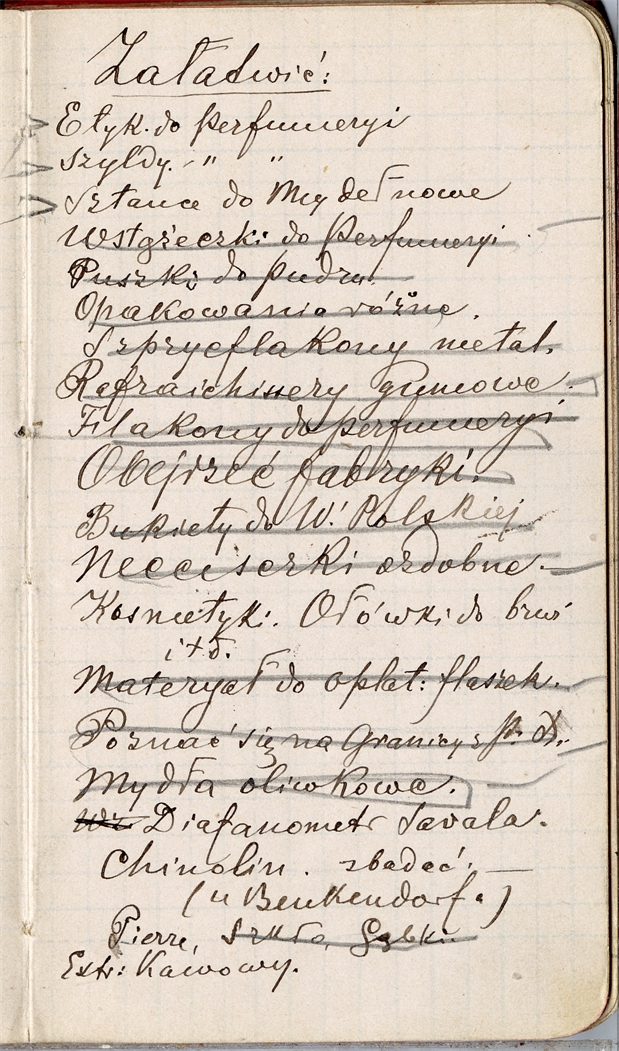 Załadwić:
Etyk. do perfumeryi
Szyldy. " "
Sztance do Mydeł nowe
Wstążeczki do Perfumeryi
Puszki do pudru.
Opakowania różne.
Szprycflakony metal.
Rafraichissery gumowe.
Flakony do perfumeryi
Obejrzeć fabryki.
Bukiety do W. Polskiej
Neceserki ozdobne.
Kosmetyki. Ołówki do brwi
i t. d.
Materyał do oplat: flaszek.
Poznać się na Granicy z P. D.
Mydła oliwkowe.
Wz Diafanometr Savala.
Chinolin. zbadać.
(u Benkendorf.)
Pierre, Szkło, Gąbki.
Extr: Kawowy.